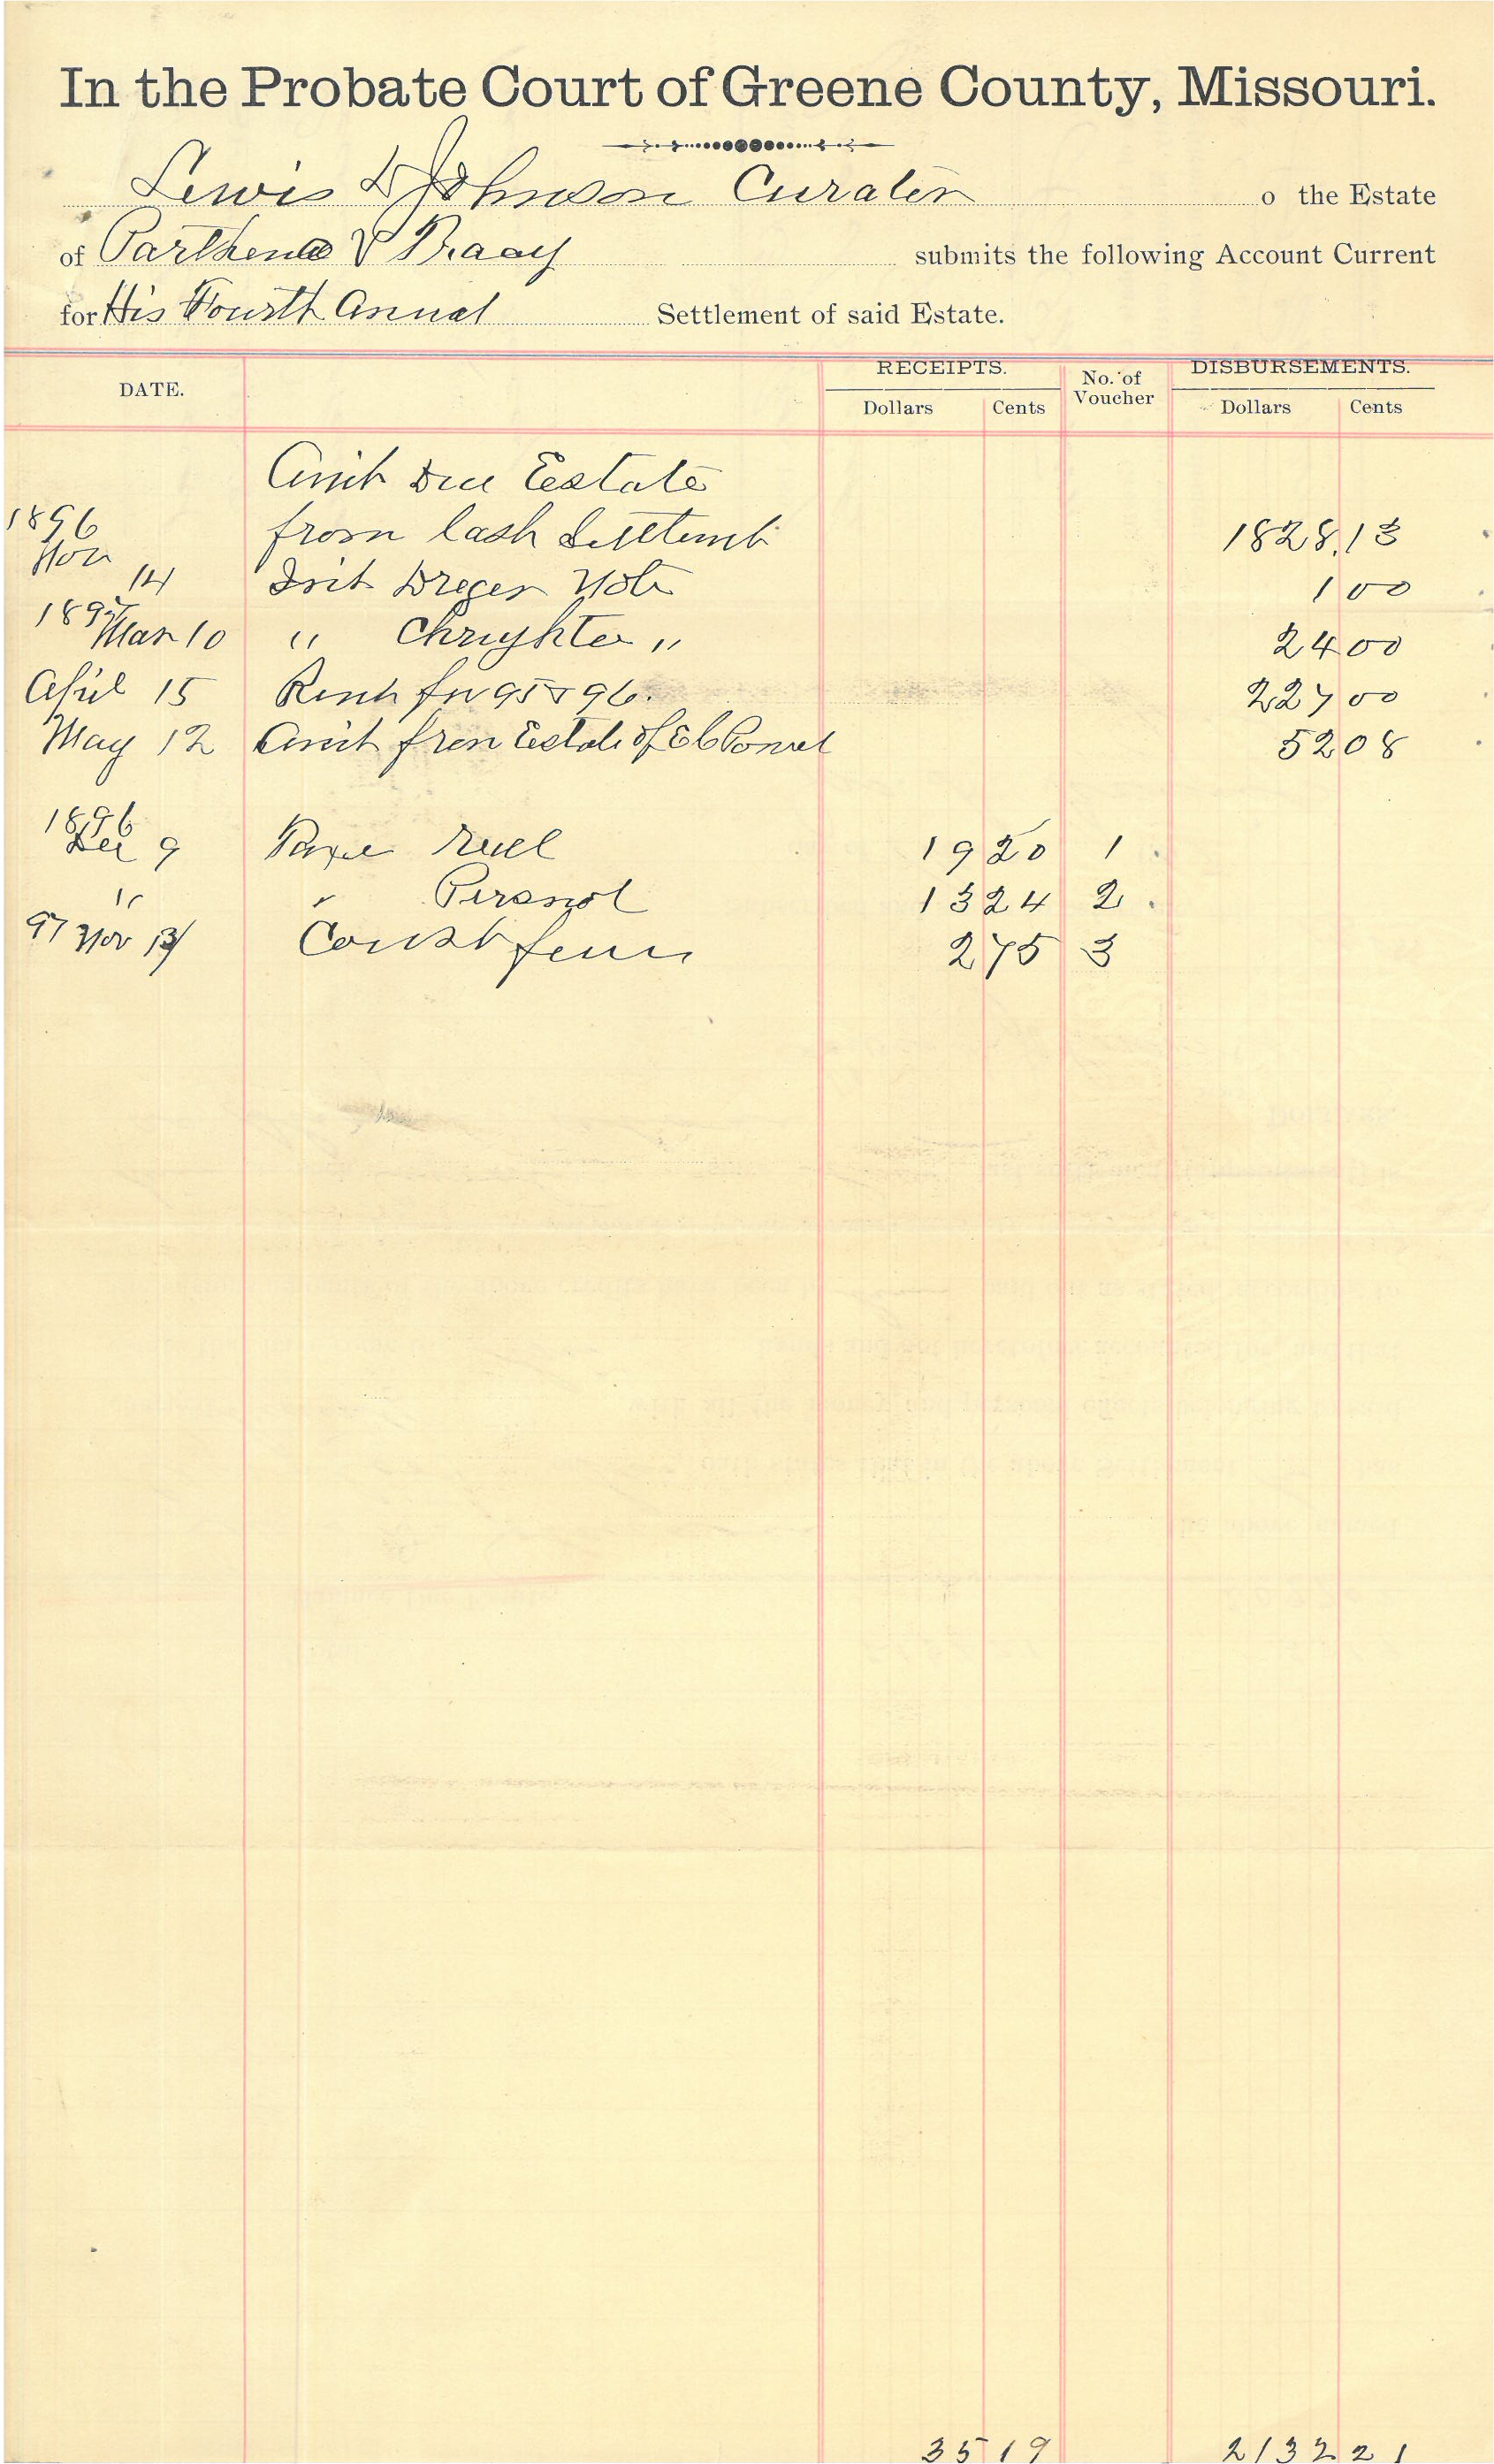 In the Probate Court of Greene County, Missouri.
Lewis D Johnson Curator o the Estate
of Parthena V Bracy submits the following Account Current
for His Fourth Annual Settlement of said Estate.
DATE. RECEIPTS. No. of Voucher DISBURSEMENTS.
Dollars Cents Dollars Cents
Amt Due Estate
1896 from last Settlemt 1828.13
Nov 14 Int Note 1 00
1897 Mar 10 " " 24 00
April 15 Rent for 95 & 96. 227 00
May 12 Amt from Estate of 52 08
1896
Dec 9 19 20 1
" " Personal 13 24 2
97 Nov 13 Court fees 2 75 3
35 19 2132 21